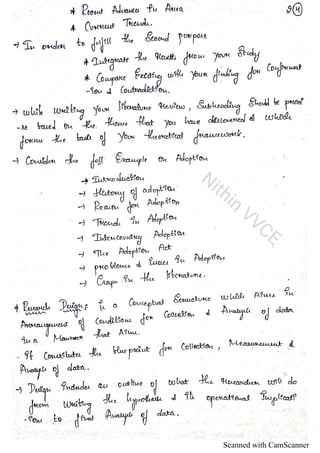 * Recent Advances in Area
* Current Trends.
→ In order to fulfill the Second purpose
* Integrate the Results from your Study
* Compare Existing with your finding for Confirmat
-ion & Contradiction.
→ while writing your literature Review, Subheading Should be preced
-ed based on the theme that you have discovered & which
forms the basis of your theoretical framework.
→ Consider the foll Example on Adoption
→ Introduction
→ History of adoption
→ Reason for Adoption
→ Trends in Adoption
→ Intercountry Adoption
→ The Adoption Act
→ problems & issues in Adoption
→ Gaps in the literature.
* Research Design: is a Conceptual Structure which Aims in
Arrangement of Conditions for Collection & Analysis of data
in a Manner that Aims.
It Constitutes the blueprint for Collection, Measurement &
Analysis of data.
→ Design includes an outline of what the researcher will do
from writing the hypothesis & its operational Implicat
-ion to final Analysis of data.
Nithin VVCE
Scanned with CamScanner